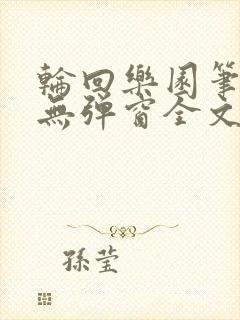 輪回樂園筆
無彈窗全文
孫瑩